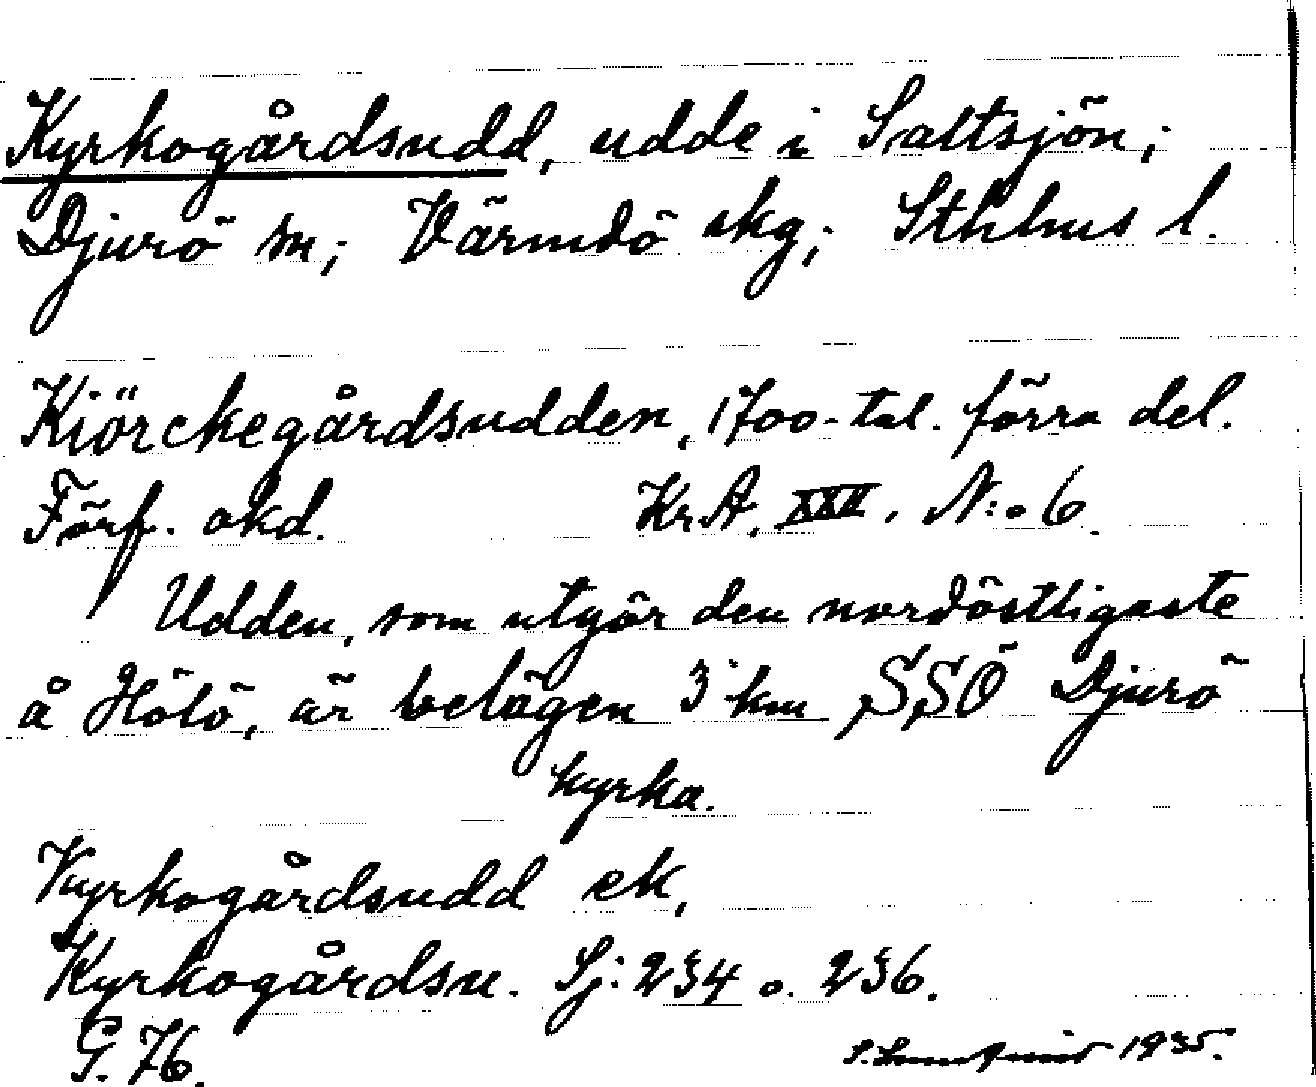 Kyrkogårdsudd, udde i Saltsjön;
Djurö sn; Värmdö skg; Sthlms l.
Kiörckegårdsudden, 1700-tal. förra del.
Förf. okd. Kr.A. XXII. N:o 6.
Udden, som utgör den nordöstligaste
å Hölö, är belägen 3 km SSÖ Djurö
kyrka.
Kyrkogårdsudd ek,
Kyrkogårdsu. Sj: 234 o. 236.
G. 76.
1935.